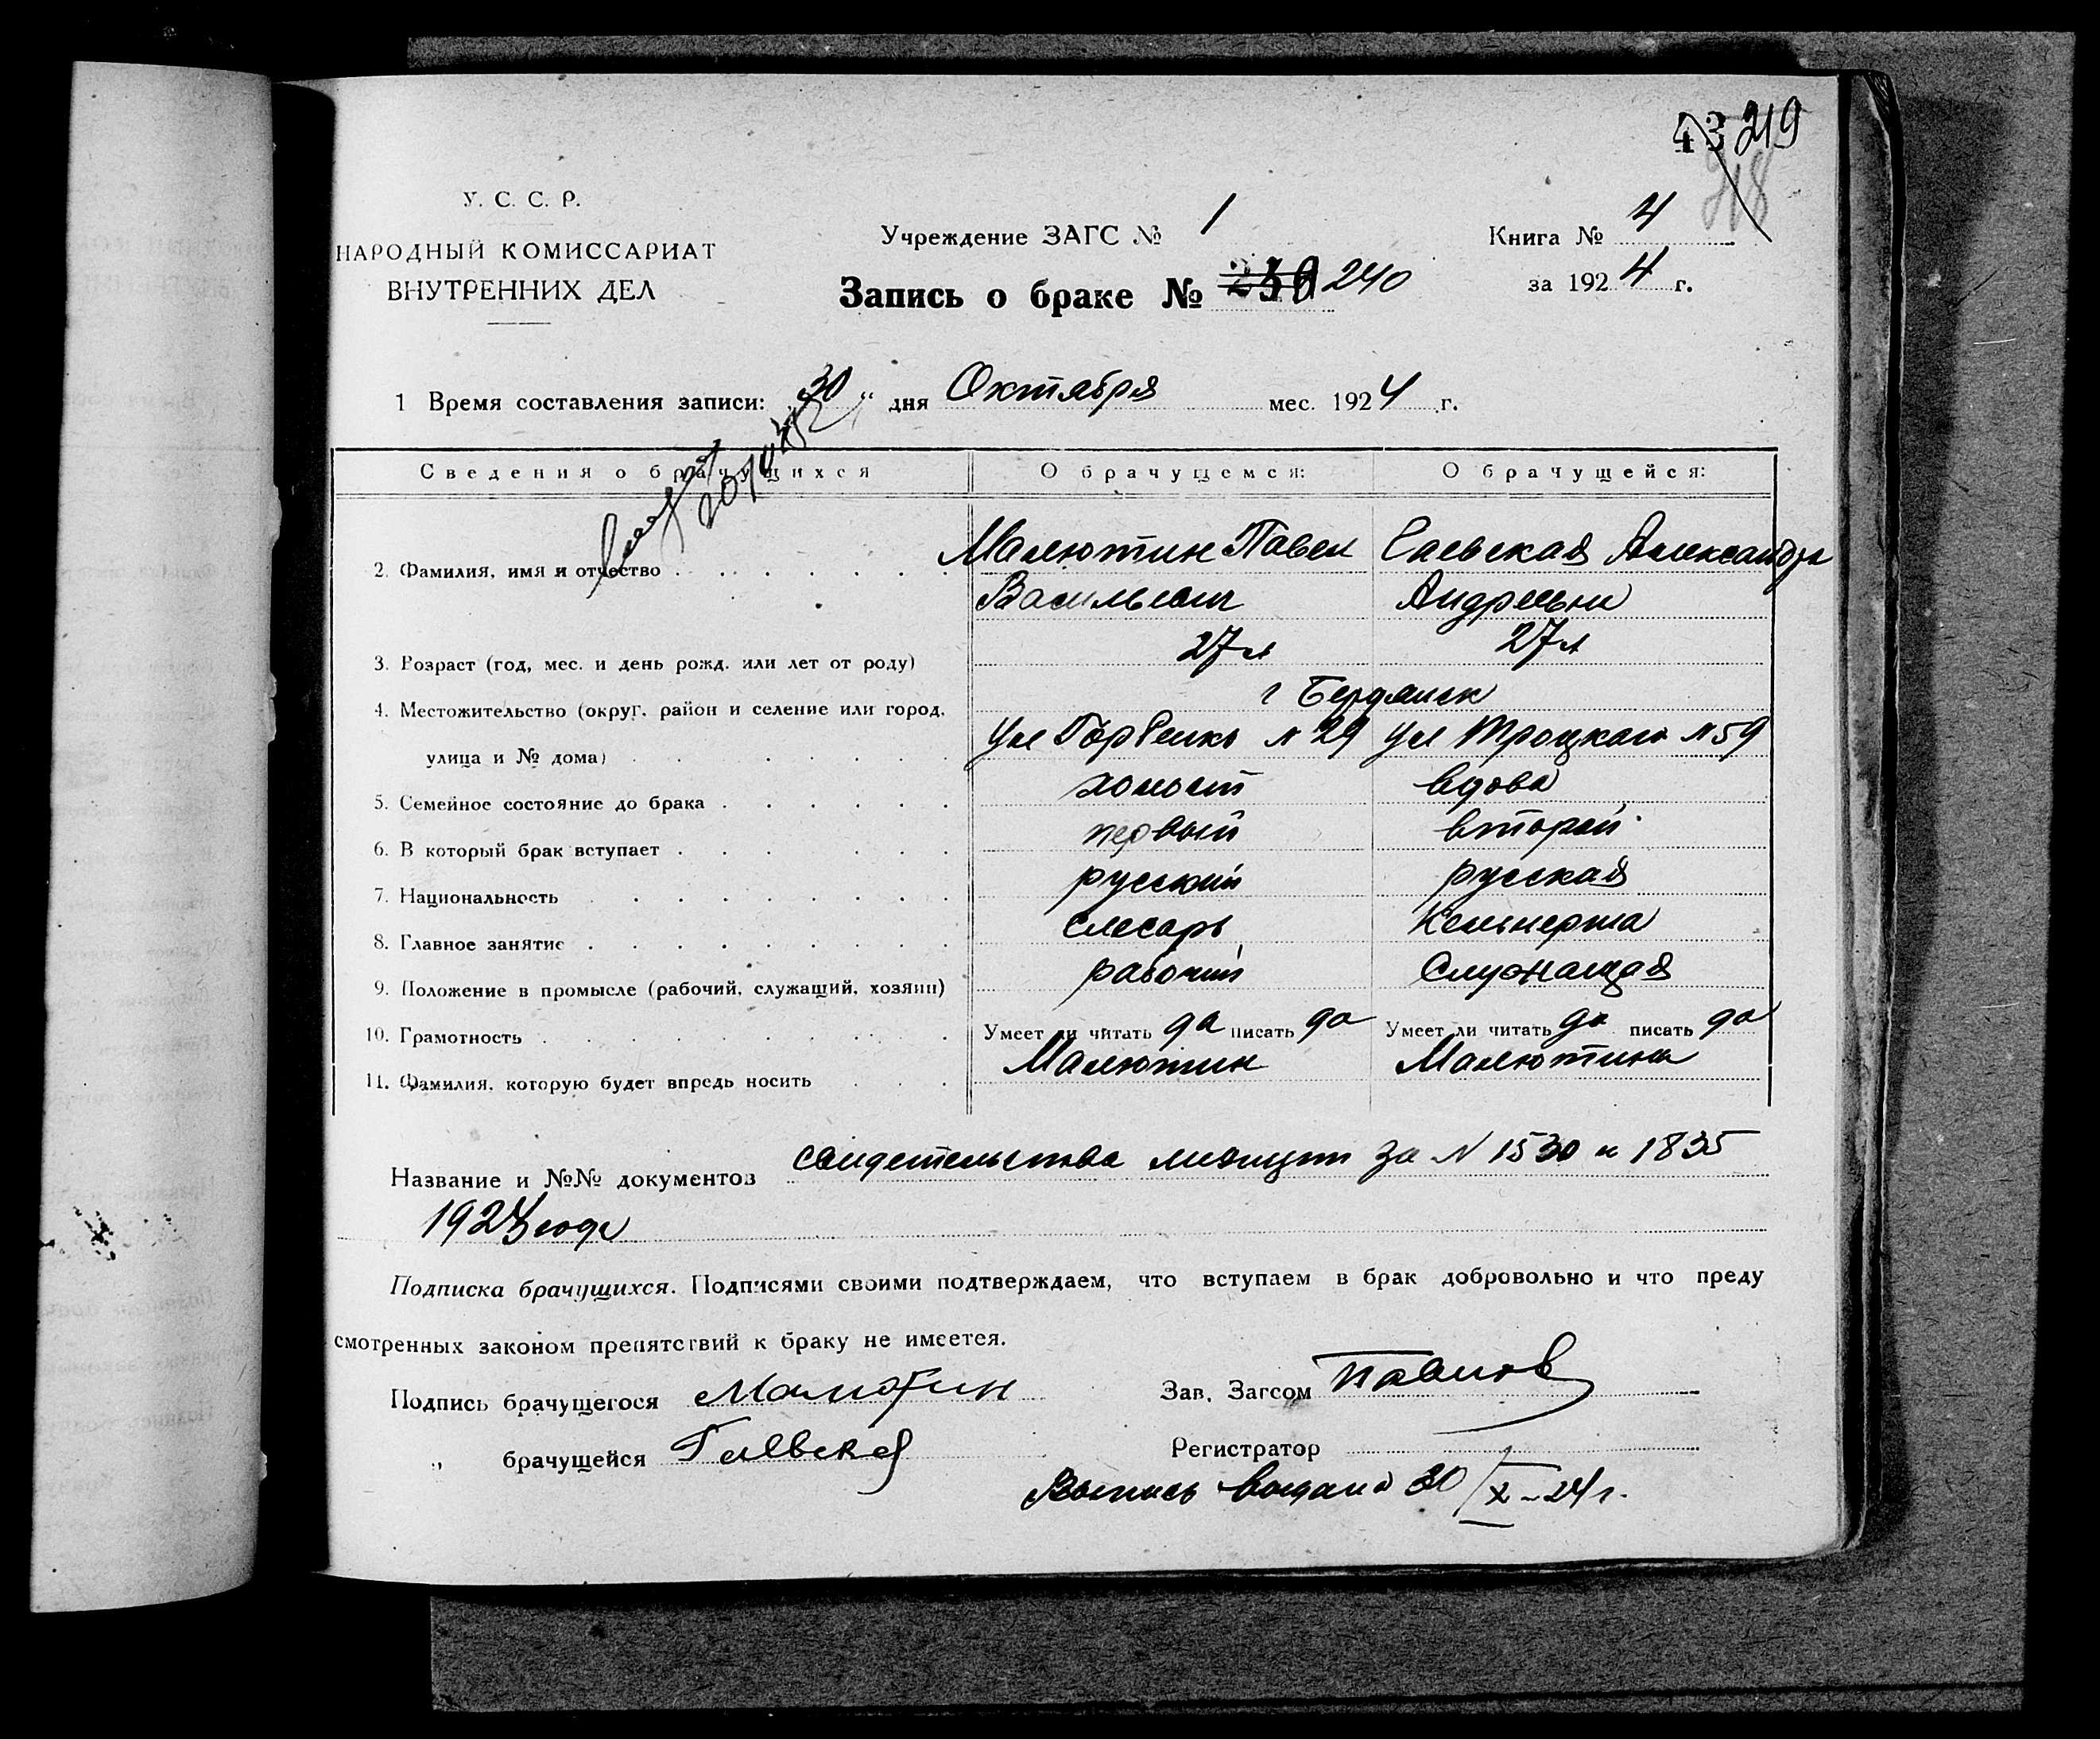 43 219
218
У. С. С. Р.
НАРОДНЫЙ КОМИССАРИАТ
ВНУТРЕННИХ ДЕЛ
Учреждение ЗАГС № 1
Запись о браке № 240
Книга № 4
за 1924 г.
1 Время составления записи: 30 " дня Октября мес. 1924 г.
Сведения о брачущихся О брачущемся: О брачущейся:
2. Фамилия, имя и отчество Малютин Павел Александра
Васильевич Андреевна
3. Возраст (год, мес. и день рожд. или лет от роду) 27 л 27 л
4. Местожительство (округ, район и селение или город, г Бердянск
улица и № дома) Ул № 29 Ул Троцкого № 59
5. Семейное состояние до брака холост вдова
6. В который брак вступает первый второй
7. Национальность русский русская
8. Главное занятие слесарь Кельнерша
9. Положение в промысле (рабочий, служащий, хозяин) рабочий Служащая
10. Грамотность Умеет ли читать да писать да Умеет ли читать да писать да
11. Фамилия, которую будет впредь носить Малютин Малютина
Название и №№ документов свидетельства милиции за № 1530 и 1835
1924 года
Подписка брачущихся. Подписями своими подтверждаем, что вступаем в брак добровольно и что преду
смотренных законом препятствий к браку не имеется.
Подпись брачущегося Малютин
Зав. Загсом Павлов
„ брачущейся
Регистратор
Выпись выдана 30/X-24 г.